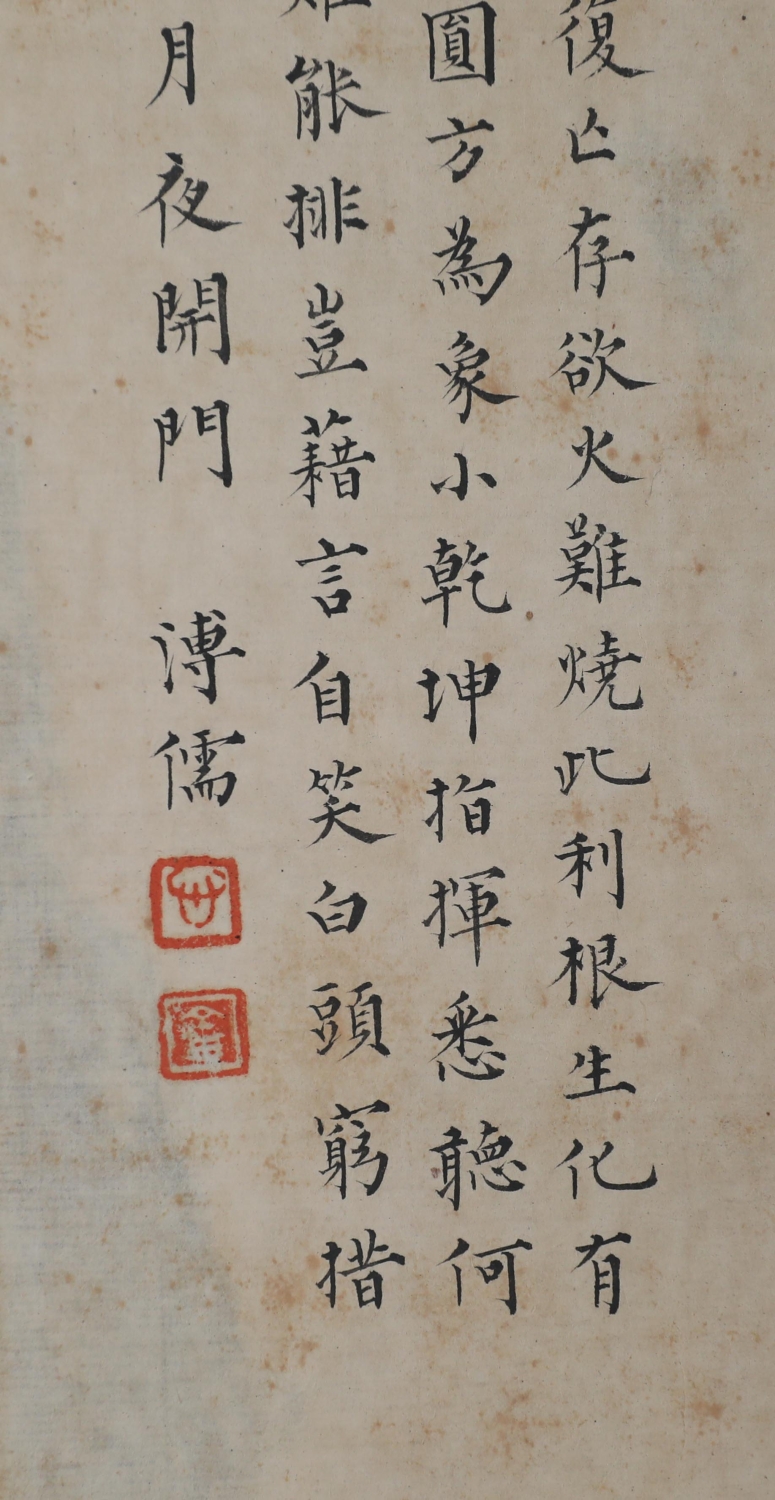 復亾存欲火難燒此利根生化有
圓方為象小乾坤指揮悉聽何
難能排豈藉言自笑白頭窮措
月夜開門 溥儒